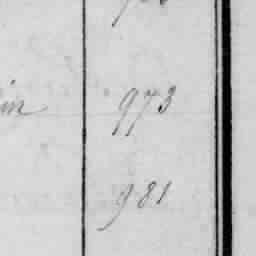 in 973
981